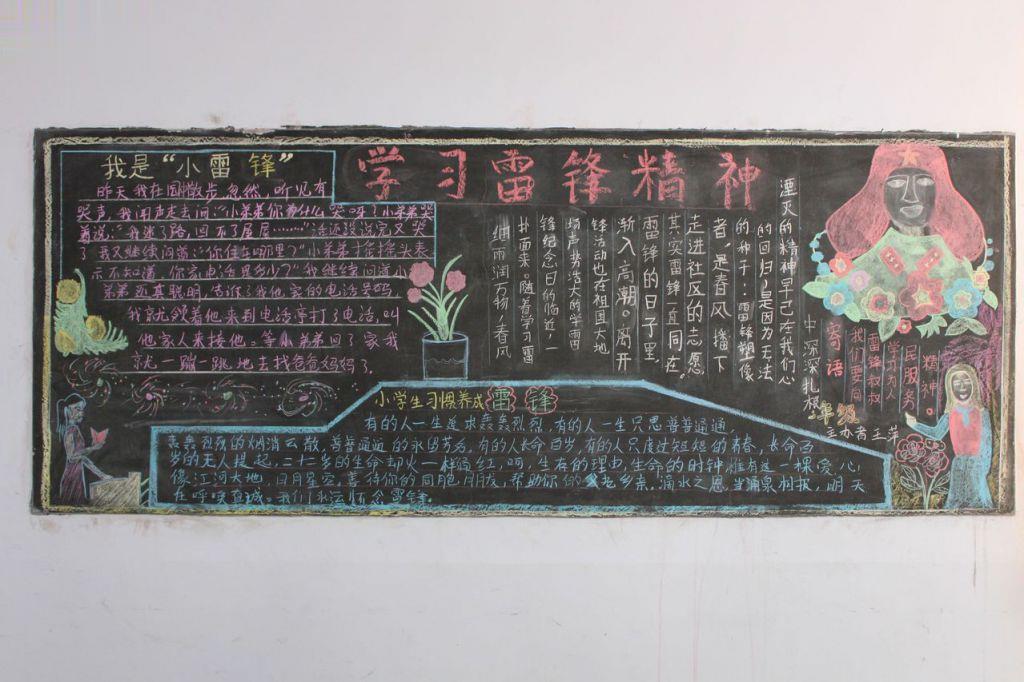 学习雷锋精神
我是“小雷锋”
昨天我在围散步忽然，听见有
哭声，我闻声走去问：“小弟弟你为什么哭呀？小弟弟哭
着说：“我迷了路，回不了屋屋……”话还没说完又哭
了我又继续问道：“你住在哪里？”小弟弟十字摇头表
示不知道，你家电话里多少？”我继续问道小
弟弟还真聪明，告诉了我他家的电话号码，
我就领着他来到电话亭打了电话，叫
他家人来接他。等小弟弟回了家我
就一蹦一跳地去找爸爸妈妈了。
细雨润万物，春风
扑面来。随着学习雷
锋纪念日的临近，一
场声势浩大的学雷
锋活动也在祖国大地
渐入高潮。离开
雷锋的日子里，
其实雷锋一直同在。
走进社区的志愿
者，是春风播下
的种子：雷锋塑像
的回归，是因为无法
湮灭的精神早已在我们心
中深深扎根。
寄语
我们要向
雷锋叔叔
学习为人
民服务
精神。
主办者王萍
小学生习惯养成 雷锋
有的人一生追求轰轰烈烈，有的人一生只思普普通通，
轰轰烈烈的烟消云散，普普通通的永留芳名，有的人长命百岁，有的人只度过短短的青春，长命百
岁的无人提起，二十二岁的生命却火一样鲜红，啊，生存的理由，生命的时钟惟有这一棵爱心
像江河大地，日月星空，善待你的同胞朋友，帮助你的父老乡亲，滴水之恩，当涌泉相报，明天
在呼唤真诚，我们永远怀念雷锋。